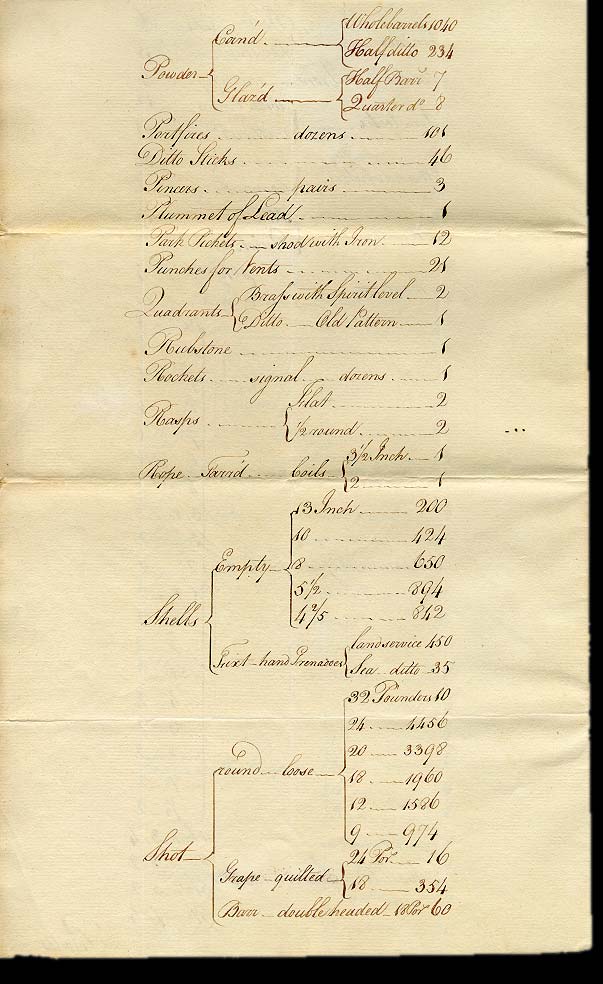 Powder Corn'd Whole barrels 1040
Half ditto 234
Glaz'd Half Barr. 7
Quarter do 8
Portfires dozens 101
Ditto Sticks 46
Pincers pairs 3
Plummet of Lead 1
Park Pickets shod with Iron 12
Punches for Vents 21
Quadrants Brass with Spirit level 2
Ditto Old Pattern 1
Rubstone 1
Rockets signal dozens 1
Rasps Flat 2
1/2 round 2
Rope Tarr'd Coils 3 1/2 Inch 1
2 1
Shells Empty 13 Inch 200
10 424
8 650
5 1/2 894
4 2/5 842
Fixt hand Grenadoes land service 450
Sea ditto 35
Shot round loose 32 Pounders 10
24 4456
20 3398
18 1960
12 1586
9 974
Grape quilted 24 Por 16
18 354
Barr double headed 18 Por 60